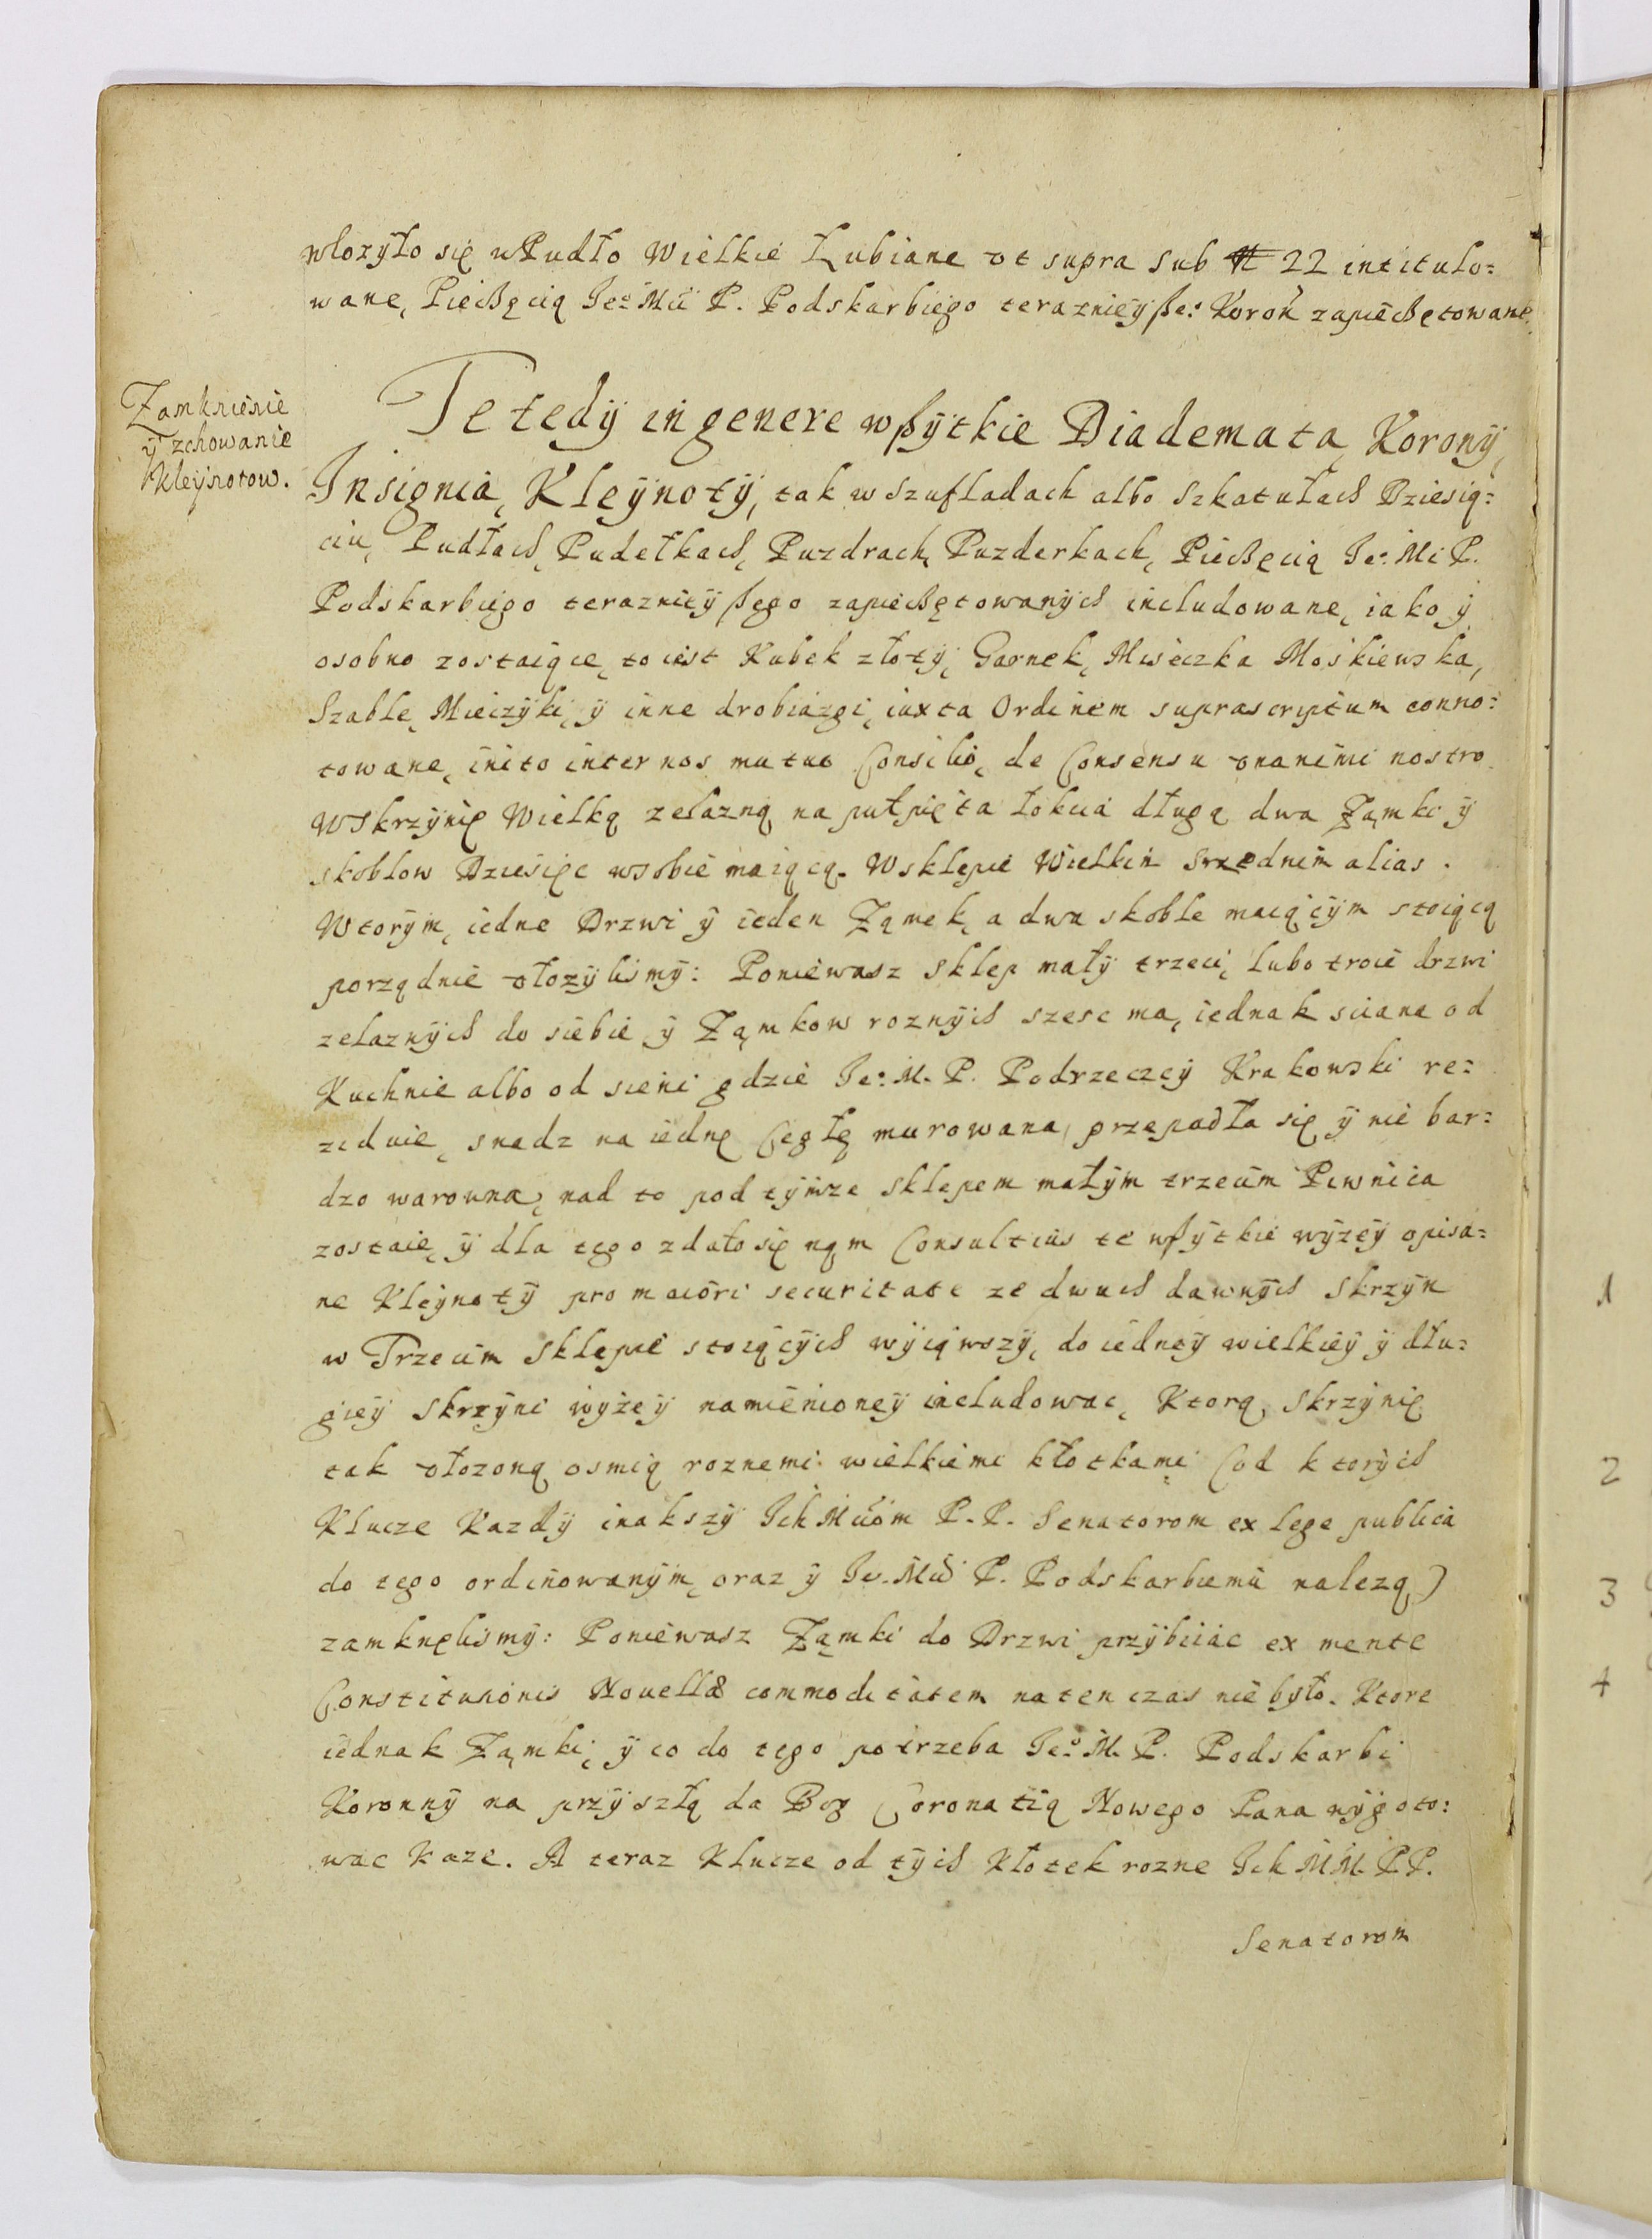 włozyło się w Pudło Wielkie Łubiane vt supra sub # 22 intitulo=
wane, Pieczęcią Jeº Mći P. Podskarbiego teraznieÿßeº Koroñ zapieczętowane.
Zamknienie
ÿ zchowanie
Kleÿnotow.
Te tedÿ in genere wßÿtkie Diademata, Koronÿ,
Insignia, Kleÿnotÿ, tak w Szufladach albo Szkatułach Dziesią=
ciu, Pudłach, Pudełkach, Puzdrach, Puzderkach, Pieczęcią Jeº Mći P.
Podskarbiego teraznieÿßego zapieczętowanÿch includowane, iako ÿ
osobno zostaiące, to iest Kubek złotÿ, Garnek, Miseczka Moskiewska,
Szable, Mieczÿki, ÿ inne drobiazgi, iuxta Ordinem suprascriptum conno=
towane, inito inter nos mutuo Consilio, de Consensu vnanimi nostro
W Skrzÿnię Wielką zelazną na pułpięta łokcia długą dwa Ząmki ÿ
skoblow Dziesięc w sobie maiącą. W sklepie Wielkim Srzednim alias.
Wtorÿm, iedne Drzwi ÿ ieden Ząmek, a dwa skoble maiącÿm stoiącą
porządnie vłozÿlismÿ: Poniewasz sklep małÿ trzeci, lubo troie drzwi
zelaznÿch do siebie ÿ Ząmkow roznÿch szesc ma, iednak sciana od
Kuchnie albo od sieni gdzie Jeº M. P. Podrzeczÿ Krakowski re=
ziduie, snadz na iednę Cegłę murowana, przepadła się ÿ nie bar=
dzo warowna, nad to pod tÿmze sklepem małÿm trzecim Piwnica
zostaie, ÿ dla tego zdało się nąm Consultius te wßÿtkie wÿzeÿ opisa=
ne Kleÿnotÿ pro maiori securitate ze dwuch dawnÿch Skrzÿn
w Trzecim Sklepie stoiącÿch wÿiąwszÿ, do iedneÿ wielkieÿ ÿ dłu=
gieÿ Skrzÿni wÿżeÿ namienioneÿ includowac, Ktorą Skrzÿnię
tak vłozoną osmią roznemi wielkiemi kłotkami (od ktorÿch
Klucze Kazdÿ inakszÿ Ich Mćiom P.P. Senatorom ex lege publica
do tego ordinowanÿm, oraz ÿ Jeº Mći P. Podskarbiemu nalezą)
zamknęlismÿ: Poniewasz Ząmki do Drzwi przÿbiiac ex mente
Constitutionis Nouellæ commoditatem na ten czas nie było. Ktore
iednak Ząmki, ÿ co do tego potrzeba Jeº M. P. Podskarbi
Koronnÿ na przÿszłą da Bog Coronatią Nowego Pana wÿgoto=
wac Kaze. A teraz Klucze od tÿch Kłotek rozne Ich MM. PP.
Senatorom
1
2
3
4